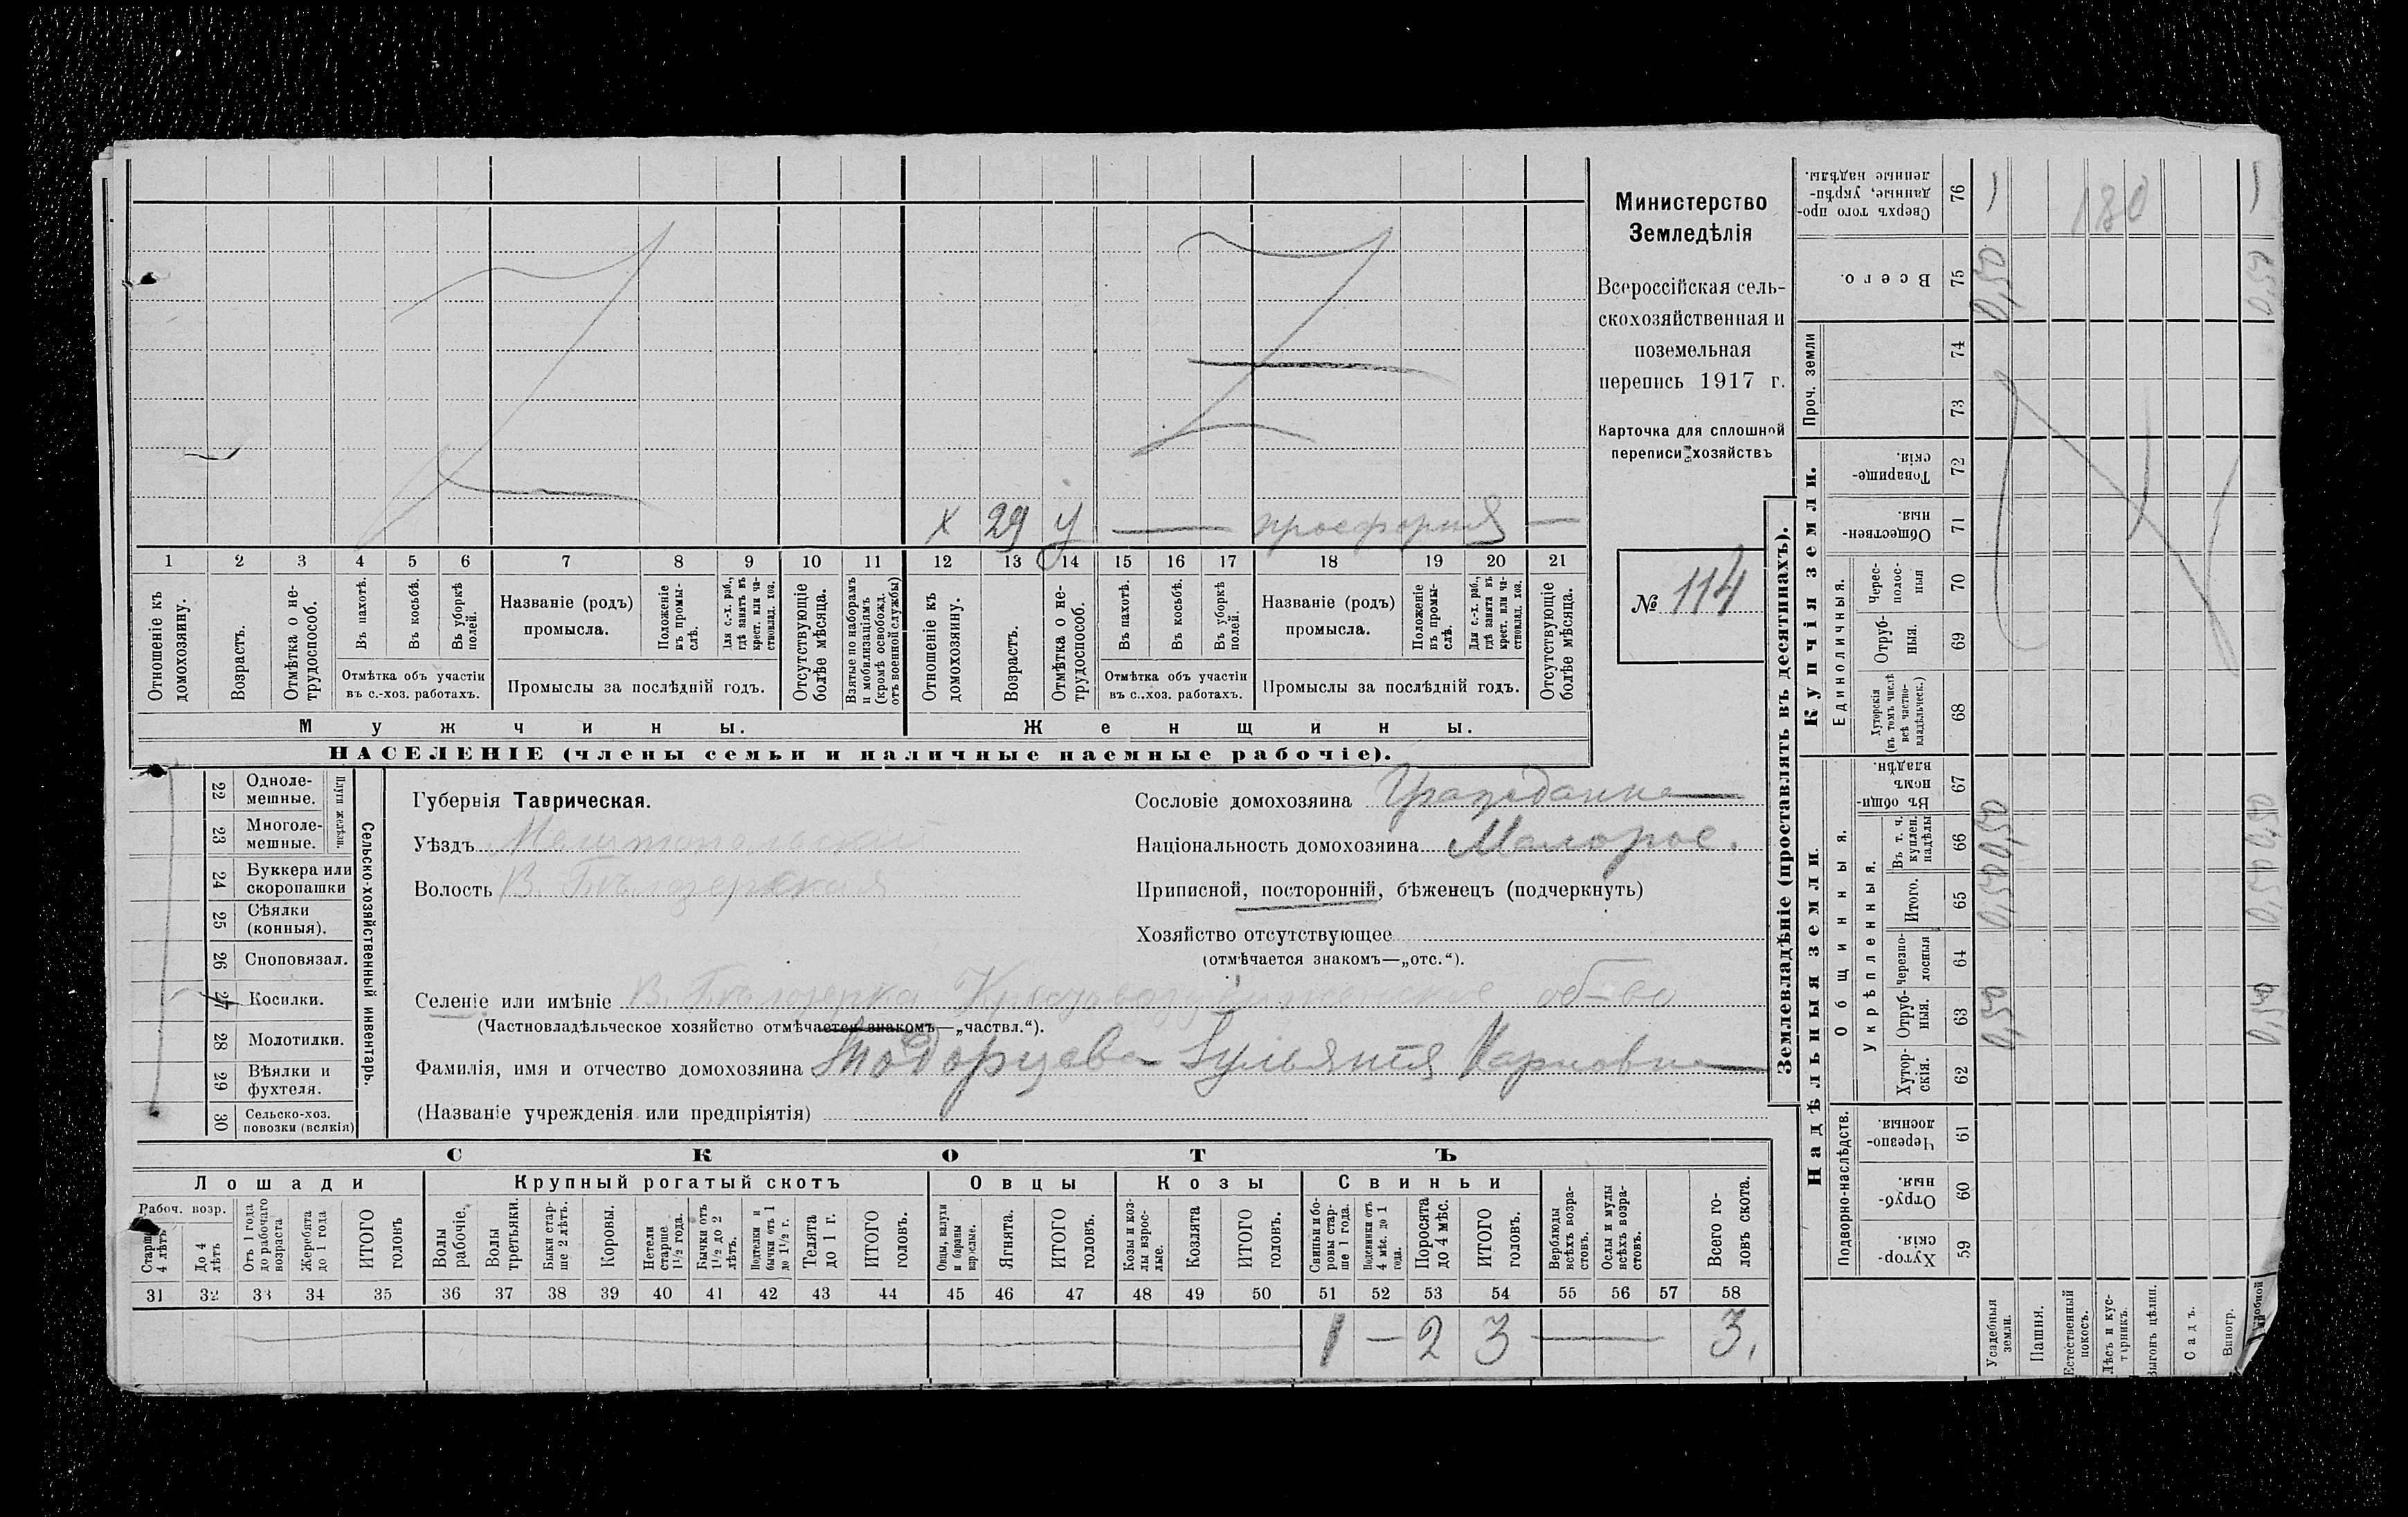 Министерство
Земледѣлія
Всероссійская сель-
скохозяйственная и
поземельная
перепись 1917 г.
Карточка для сплошной
переписи хозяйствъ
№ 114
х 29 У — —
1 2 3 4 5 6 7 8 9 10 11 12 13 14 15 16 17 18 19 20 21
Отношеніе къ домохозяину.
Возрастъ.
Отмѣтка о не-трудоспособ.
Въ пахотѣ.
Въ косьбѣ.
Въ уборкѣ полей.
Отмѣтка объ участіи
въ с.-хоз. работахъ.
Названіе (родъ)
промысла.
Положеніе въ промы-слѣ.
Для с.-х. раб., гдѣ занятъ въ крест. или ча-стновлад. хоз.
Промыслы за послѣдній годъ.
Отсутствующіе болѣе мѣсяца.
Взятые по наборамъ и мобилизаціямъ (кромѣ освобожд. отъ военной службы)
Отношеніе къ домохозяину.
Возрастъ.
Отмѣтка о не-трудоспособ.
Въ пахотѣ.
Въ косьбѣ.
Въ уборкѣ полей.
Отмѣтка объ участіи
въ с..хоз. работахъ.
Названіе (родъ)
промысла.
Положеніе въ промы-слѣ.
Для с.-х. раб., гдѣ занята въ крест. или ча-стновлад. хоз.
Промыслы за послѣдній годъ.
Отсутствующіе болѣе мѣсяца.
Мужчины.
Женщины.
НАСЕЛЕНІЕ (члены семьи и наличные наемные рабочіе).
Сельско-хозяйственный инвентарь.
Плуги желѣзн.
22 Одноле-мешные.
23 Многоле-мешные.
24 Буккера или скоропашки
25 Сѣялки (конныя).
26 Сноповязал.
27 Косилки.
28 Молотилки.
29 Вѣялки и фухтеля.
30 Сельско-хоз. повозки (всякія)
Губернія Таврическая.
Уѣздъ Мелитопольскій
Волость В. Бѣлозерская
Селеніе или имѣніе В. Бѣлозерка об-во
(Частновладѣльческое хозяйство отмѣчается знакомъ—„частвл.“).
Фамилія, имя и отчество домохозяина Карповна
(Названіе учрежденія или предпріятія)
Сословіе домохозяина Гражданка
Національность домохозяина Малорос.
Приписной, посторонній, бѣженецъ (подчеркнуть)
Хозяйство отсутствующее
(отмѣчается знакомъ—„отс.“).
СКОТЪ
Лошади
Крупный рогатый скотъ
Овцы
Козы
Свиньи
Рабоч. возр.
Старше 4 лѣтъ
До 4 лѣтъ
Отъ 1 года до рабочаго возраста
Жеребята до 1 года
ИТОГО головъ
Волы рабочіе.
Волы третьяки.
Быки стар-ше 2 лѣтъ.
Коровы.
Нетели старше 1½ года.
Бычки отъ 1½ до 2 лѣтъ.
Подтелки и бычки отъ 1 до 1½ г.
Телята до 1 г.
ИТОГО головъ.
Овцы, валухи и бараны взрослые.
Ягнята.
ИТОГО головъ.
Козы и коз-лы взрос-лые.
Козлята
ИТОГО головъ.
Свиньи и бо-ровы стар-ше 1 года.
Подсвинки отъ 4 мѣс. до 1 года.
Поросята до 4 мѣс.
ИТОГО головъ.
Верблюды всѣхъ возра-стовъ.
Ослы и мулы всѣхъ возра-стовъ.
Всего го-ловъ скота.
31 32 33 34 35 36 37 38 39 40 41 42 43 44 45 46 47 48 49 50 51 52 53 54 55 56 57 58
1 — 2 3 — 3.
Землевладѣніе (проставлять въ десятинахъ).
Надѣльныя земли.
Купчія земли.
Проч. земли
Подворно-наслѣдств.
Общинныя.
Укрѣпленныя.
Единоличныя.
59 Хутор-скія.
60 Отруб-ныя.
61 Черезпо-лосныя.
62 Хутор-скія.
63 Отруб-ныя.
64 Черезпо-лосныя
65 Итого.
66 Въ т. ч. куплен. надѣлы
67 Въ общи-номъ владѣн.
68 Хуторскія (въ томъ числѣ всѣ частно-владѣльческ.)
69 Отруб-ныя.
70 Черес-полос-ныя
71 Обществен-ныя.
72 Товарище-скія.
73
74
75 Всего.
76 Сверхъ того про-данные, укрѣп-ленные надѣлы.
Усадебныя земли.
Пашня.
Естественный покосъ.
Лѣсъ и кус-тарникъ.
Выгонъ цѣлин.
Садъ.
Виногр.
180